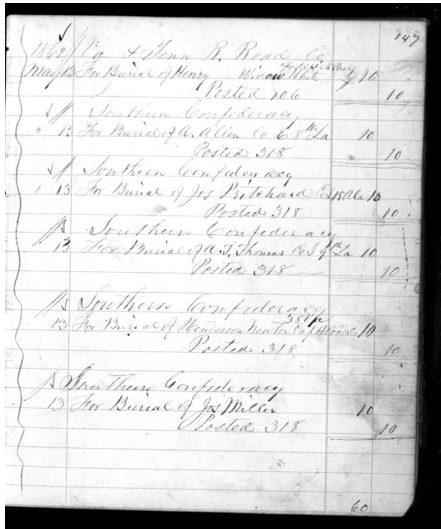 147
1862 Va & Tenn R. Road Co
May 13 For Burial of Henry Widow White 10
Posted 106 10
Southern Confederacy
" 13 For Burial of A. Allen Co E 8th La 10
Posted 318 10
Southern Confederacy
" 13 For Burial of Jos Pritchard Co 18 Ala 10
Posted 318 10
Southern Confederacy
13 For Burial of A. T. Thomas Co I 9th La 10
Posted 318 10
Southern Confederacy
38 Va
13 For Burial of Henderson Newton Co 10
Posted 318 10
Southern Confederacy
13 For Burial of Jos Miller 10
Posted 318 10
60